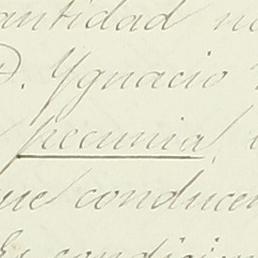 antidad no
D. Ygnacio
pecunia,
que conducen
condicion